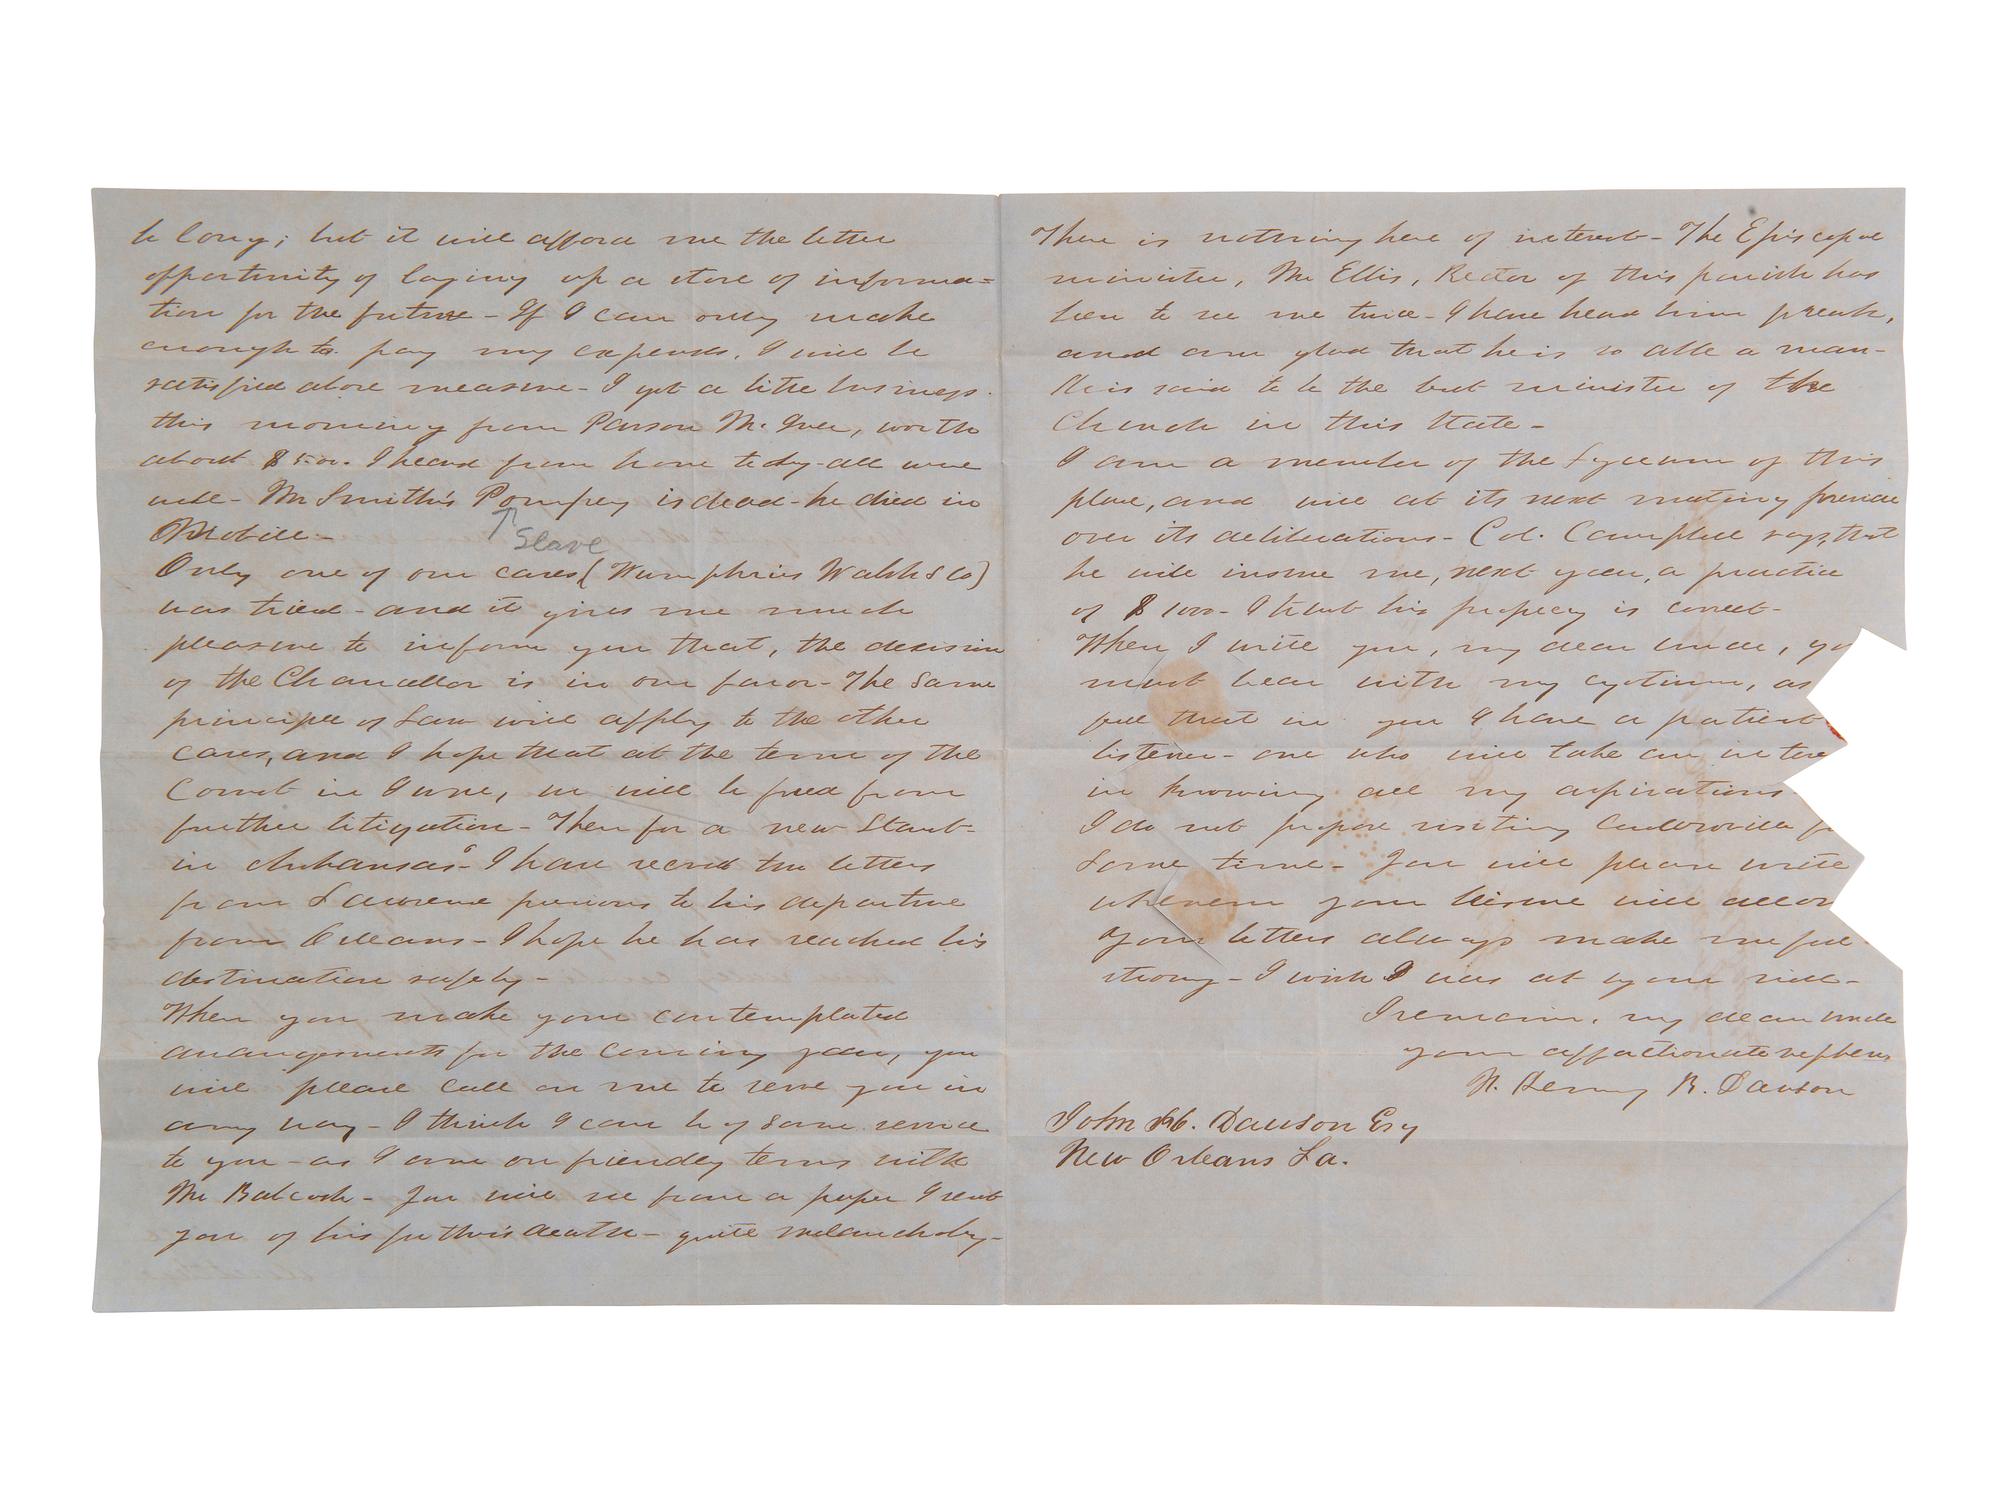 be long; but it will afford me the better
opportunity of laying up a store of informa=
tion for the future - If I can only make
enough to pay my expenses, I will be
satisfied above measure - I got a little business
this morning from Parson McIver, worth
about $5.00. I heard from home to day - all were
well - Mr Smith's Pompey is dead - he died in
Mobile -
Slave
Only one of our cases (Humphries Walsh & Co)
was tried - and it gives me much
pleasure to inform you that, the decision
of the Chancellor is in our favor - The same
principle of Law will apply to the other
cases, and I hope that at the term of the
Court in June, we will be freed from
further litigation - Then for a new Start
in Arkansas - I have recvd two letters
from Lawrence previous to his departure
from Orleans - I hope he has reached his
destination safely -
When you make your contemplated
arrangements for the coming year, you
will please call on me to serve you in
any way - I think I can be of some service
to you - as I am on friendly terms with
Mr Babcock - You will see from a paper I sent
you of his father's death - quite melancholy -
There is nothing here of interest - The Episcopal
minister, Mr Ellis, Rector of this parish has
been to see me twice - I have heard him preach,
and am glad that he is so able a man -
He is said to be the best minister of the
Church in this State -
I am a member of the Lyceum of this
place, and will at its next meeting preside
over its deliberations - Col. Campbell says, that
he will insure me, next year, a practice
of $1000 - I trust his propecy is correct -
When I write you, my dear uncle, yo
must bear with my egotism, as
feel that in you I have a patient
listener - one who will take an intere
in knowing all my aspirations -
I do not propose visiting f
some time - You will please write
whenever your leisure will allow
Your letters always make me feel
strong - I wish I was at your side -
I remain, my dear uncle
your affectionate nephew
N. Henry R. Dawson
John H. Dawson Esq
New Orleans La.